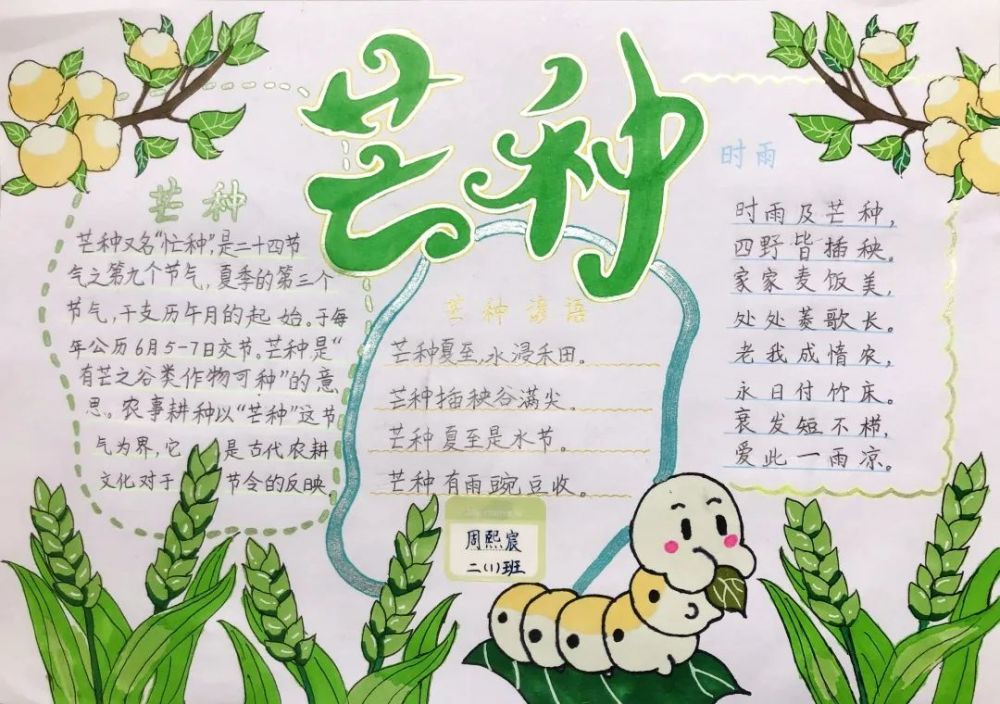 芒种
芒种
芒种又名“忙种”,是二十四节
气之第九个节气,夏季的第三个
节气,干支历午月的起始。于每
年公历6月5-7日交节。芒种是“
有芒之谷类作物可种”的意
思。农事耕种以“芒种”这节
气为界,它是古代农耕
文化对于节令的反映
芒种谚语
芒种夏至,水浸禾田。
芒种插秧谷满尖。
芒种夏至是水节。
芒种有雨豌豆收。
周熙宸
二(1)班
时雨
时雨及芒种,
四野皆插秧。
家家麦饭美,
处处菱歌长。
老我成惰农,
永日付竹床。
衰发短不栉,
爱此一雨凉。